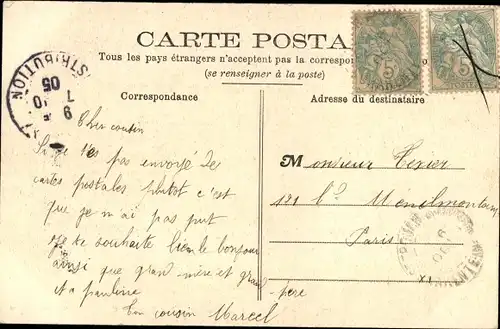 CARTE POSTA
Tous les pays étrangers n'acceptent pas la correspon
(se renseigner à la poste)
Correspondance
Adresse du destinataire
DISTRIBUTION
9
7 10
05
Cher cousin
Si je t'es pas envoyé des
cartes postales plutôt c'est
que je m'ai pas put
Je te souhaite bien le bonjour
ainsi que grand mère et grand
père
et a pauline
Ton cousin Marcel
Monsieur Texier
121 bd Menilmontant
Paris
XI
5
5